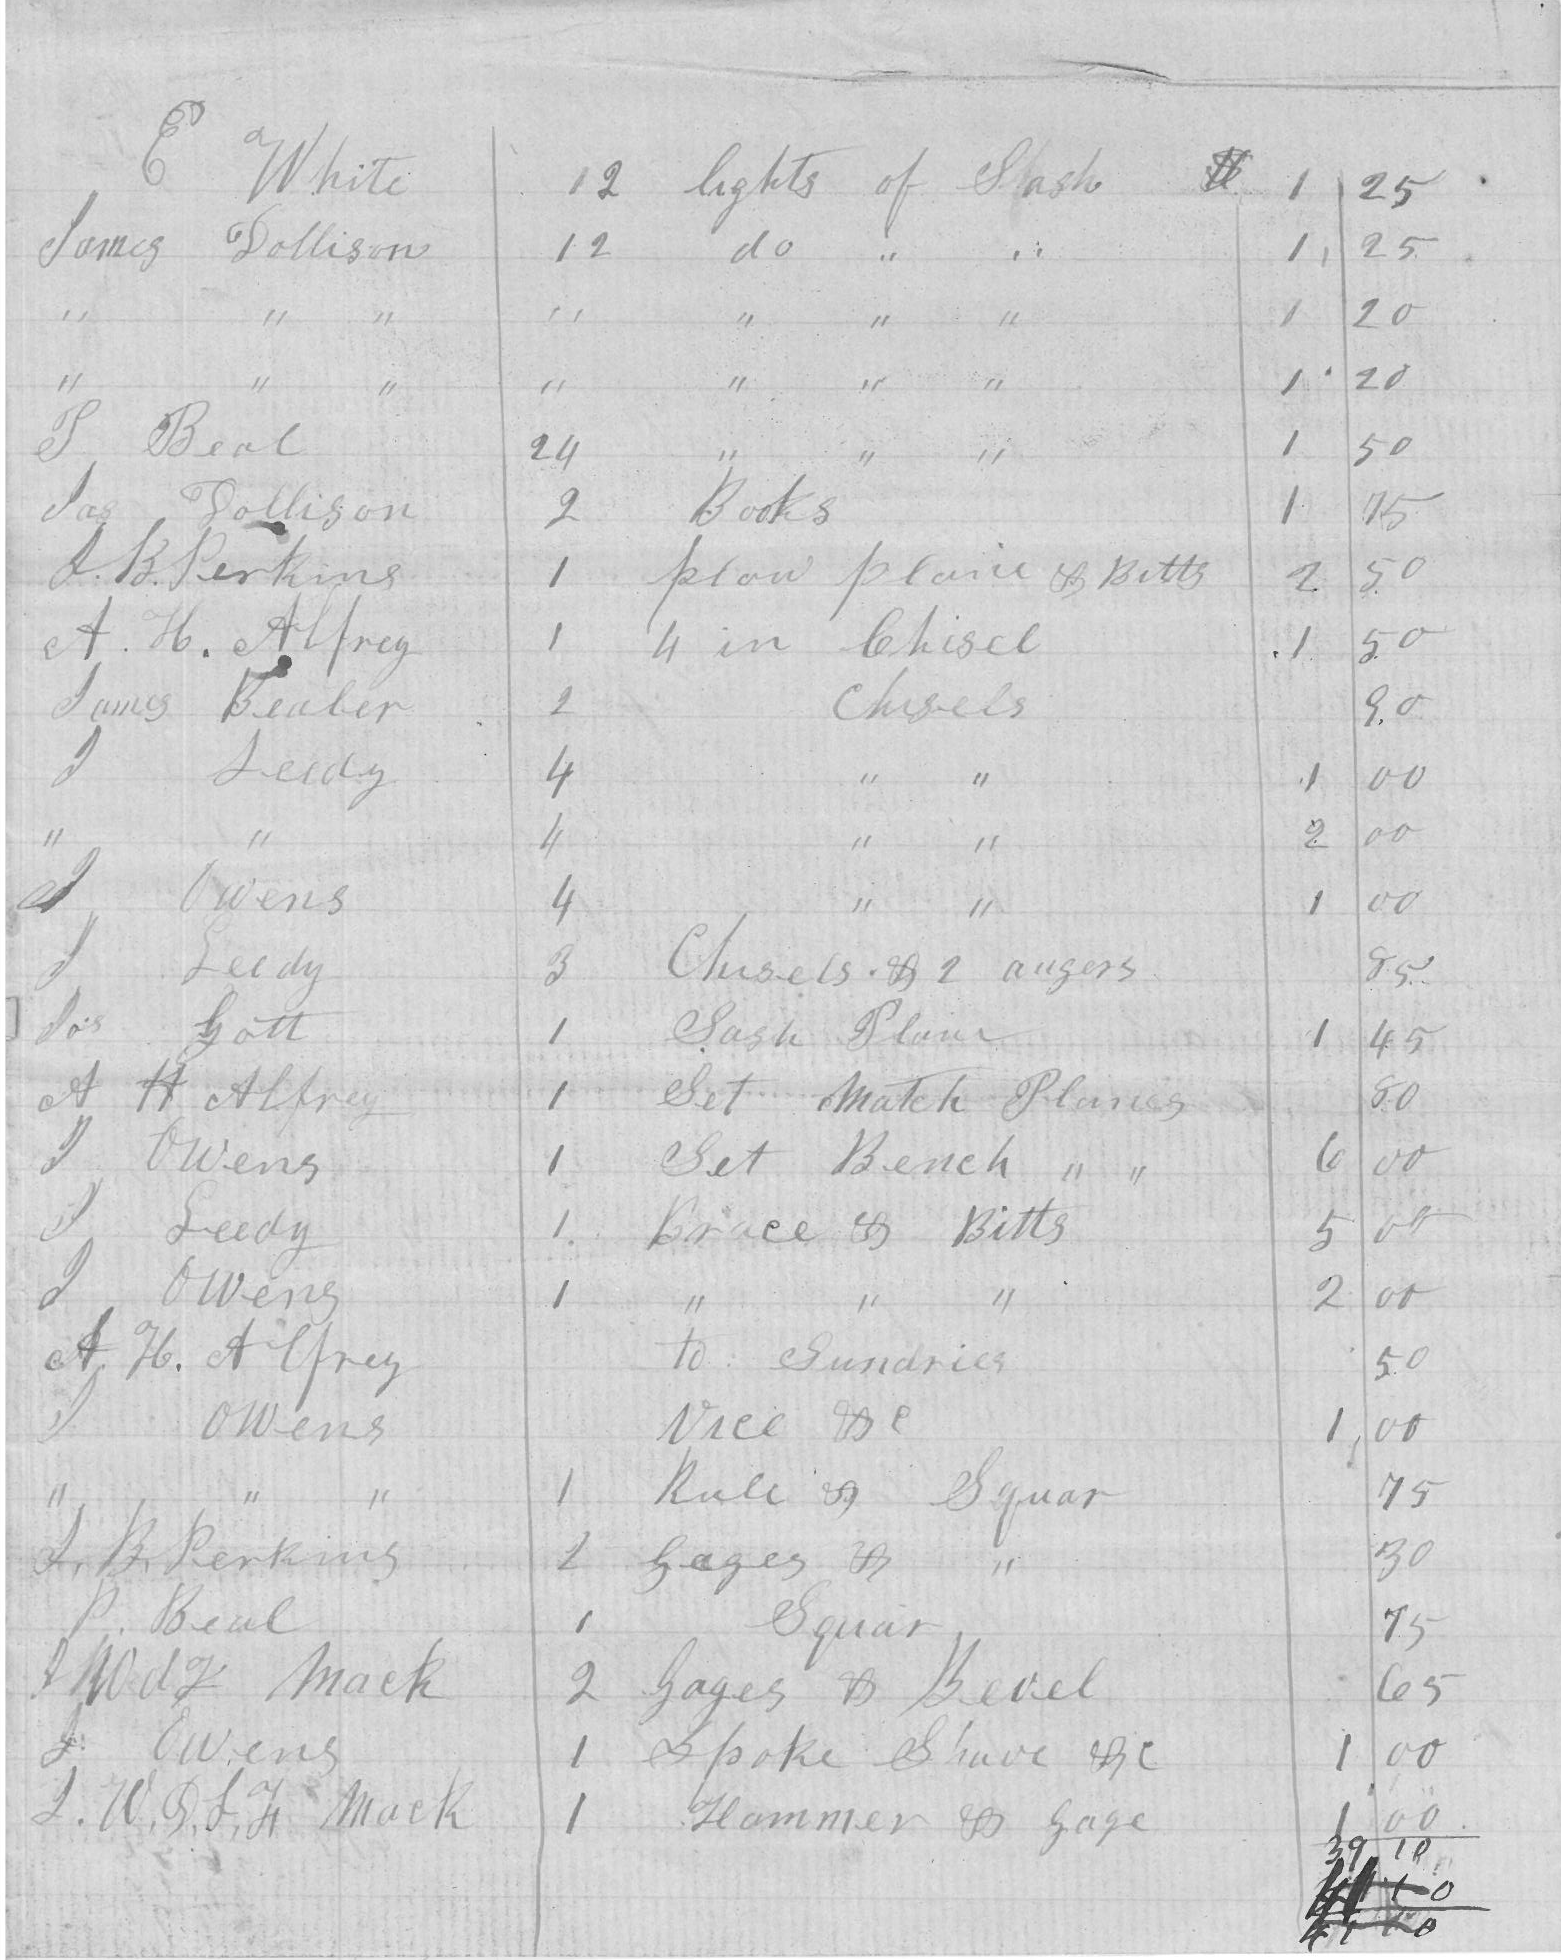 E White 12 lights of Slash $ 1 25
James Dollison 12 do " " 1 25
" " " " " " " 1 20
" " " " " " " 1 20
P Beal 24 " " " 1 50
Jas Dollison 2 Books 1 75
J. B. Perkins 1 plow plane & Bitts 2 50
A. H. Alfrey 1 4 in Chisel 1 50
James Beaber 2 Chisels 90
J Leedy 4 " " 1 00
" " 4 " " 2 00
J Owens 4 " " 1 00
J Leedy 3 Chisels & 2 augers 85
Jos Gott 1 Sash Plane 1 45
A H Alfrey 1 Set Match Planes 80
J Owens 1 Set Bench " " 6 00
J Leedy 1 Brace & Bitts 5 00
J Owens 1 " " " 2 00
A. H. Alfrey to Sundries 50
J Owens Vice &c 1 00
" " " 1 Rule & Squar 75
J. B. Perkins 2 Gages & " 30
P. Beal 1 Squar 75
Mack 2 Gages & Bevel 65
J Owens 1 Spoke Shave &c 1 00
Mack 1 Hammer & Gage 1 00
39 10